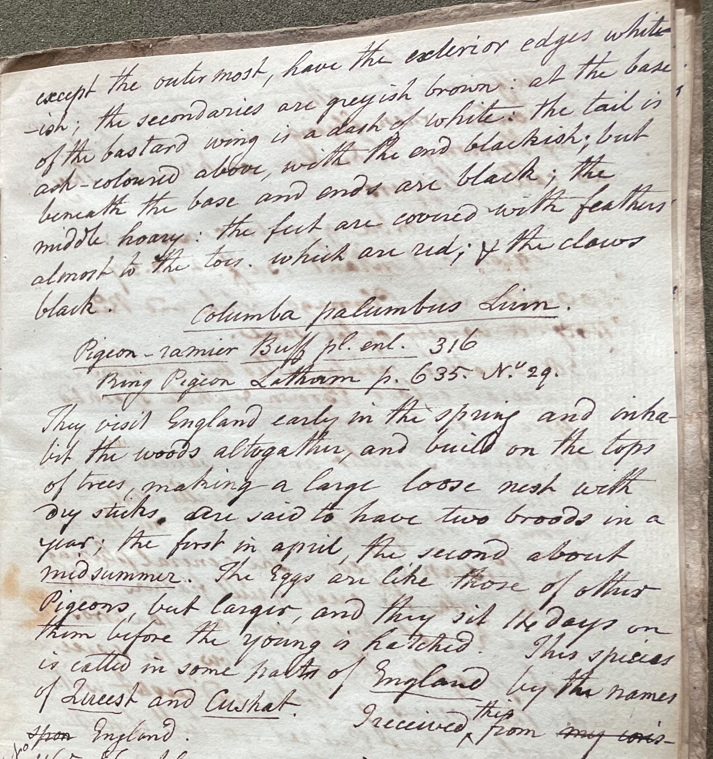 except the outer most, have the exterior edges whit-
-ish; the secondaries are greyish brown: at the base
of the bastard wing is a dash of white: the tail is
ash-coloured above, with the end blackish; but
beneath the base and ends are black; the
middle hoary: the feet are covered with feathers
almost to the toes. which are red; & the claws
black.
Columba palumbus Linn.
Pigeon-ramier Buff pl. enl. 316
Ring Pigeon Latham p. 635. No. 29.
They visit England early in the spring and inha-
bit the woods altogather, and build on the tops
of trees, making a large loose nest with
dry sticks. are said to have two broods in a
year; the first in april, the second about
midsummer. The Eggs are like those of other
Pigeons, but larger, and they sit 14 days on
them before the young is hatched. This species
is called in some parts of England by the names
of Queest and Cushat.
I received this from my
England.